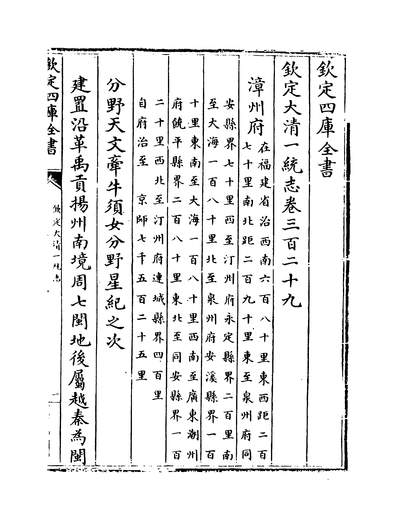 欽定四庫全書
欽定大清一統志卷三百二十九
漳州府
在福建省治西南六百八十里東西距二百
七十里南北距二百九十里東至泉州府同
安縣界七十里西至汀州府永定縣界二百里南
至大海一百八十里北至泉州府安溪縣界一百
十里東南至大海一百八十里西南至廣東潮州
府饒平縣界二百八十里東北至同安縣界一百
二十里西北至汀州府連城縣界四百里
自府治至 京師七千五百二十五里
分野天文牽牛須女分野星紀之次
建置沿革禹貢揚州南境周七閩地後屬越秦為閩
欽定四庫全書
欽定大清一統志
一